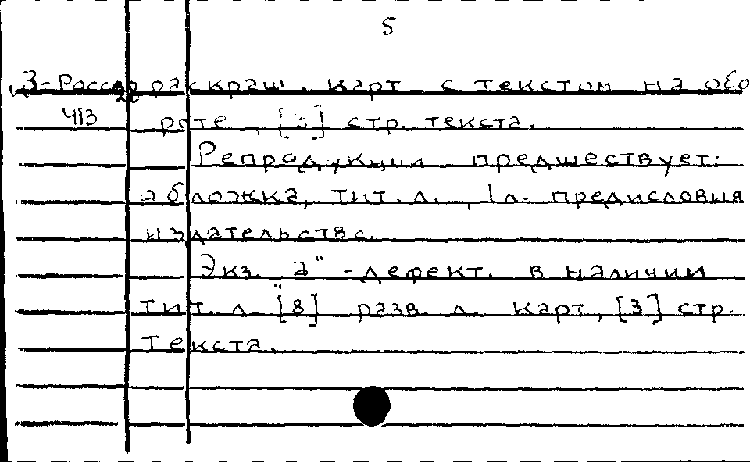 5
З-Россия раскраш. карт с текстом на обо
413 роте, [3] стр. текста.
Репродукции предшествует:
обложка, тит. л., 1 л. предисловия
издательства.
Экз. "а" - дефект. в наличии
тит. л. [8] разв. л. карт, [3] стр.
текста.